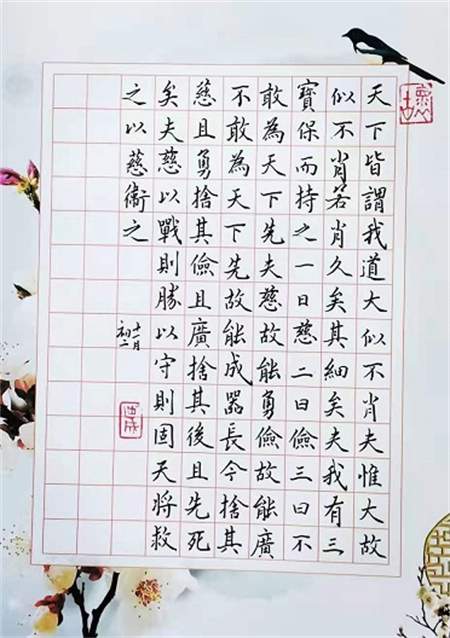 天下皆謂我道大似不肖夫惟大故
似不肖若肖久矣其細矣夫我有三
寶保而持之一曰慈二曰儉三曰不
敢為天下先夫慈故能勇儉故能廣
不敢為天下先故能成器長今捨其
慈且勇捨其儉且廣捨其後且先死
矣夫慈以戰則勝以守則固天將救
之以慈衛之
月
初二